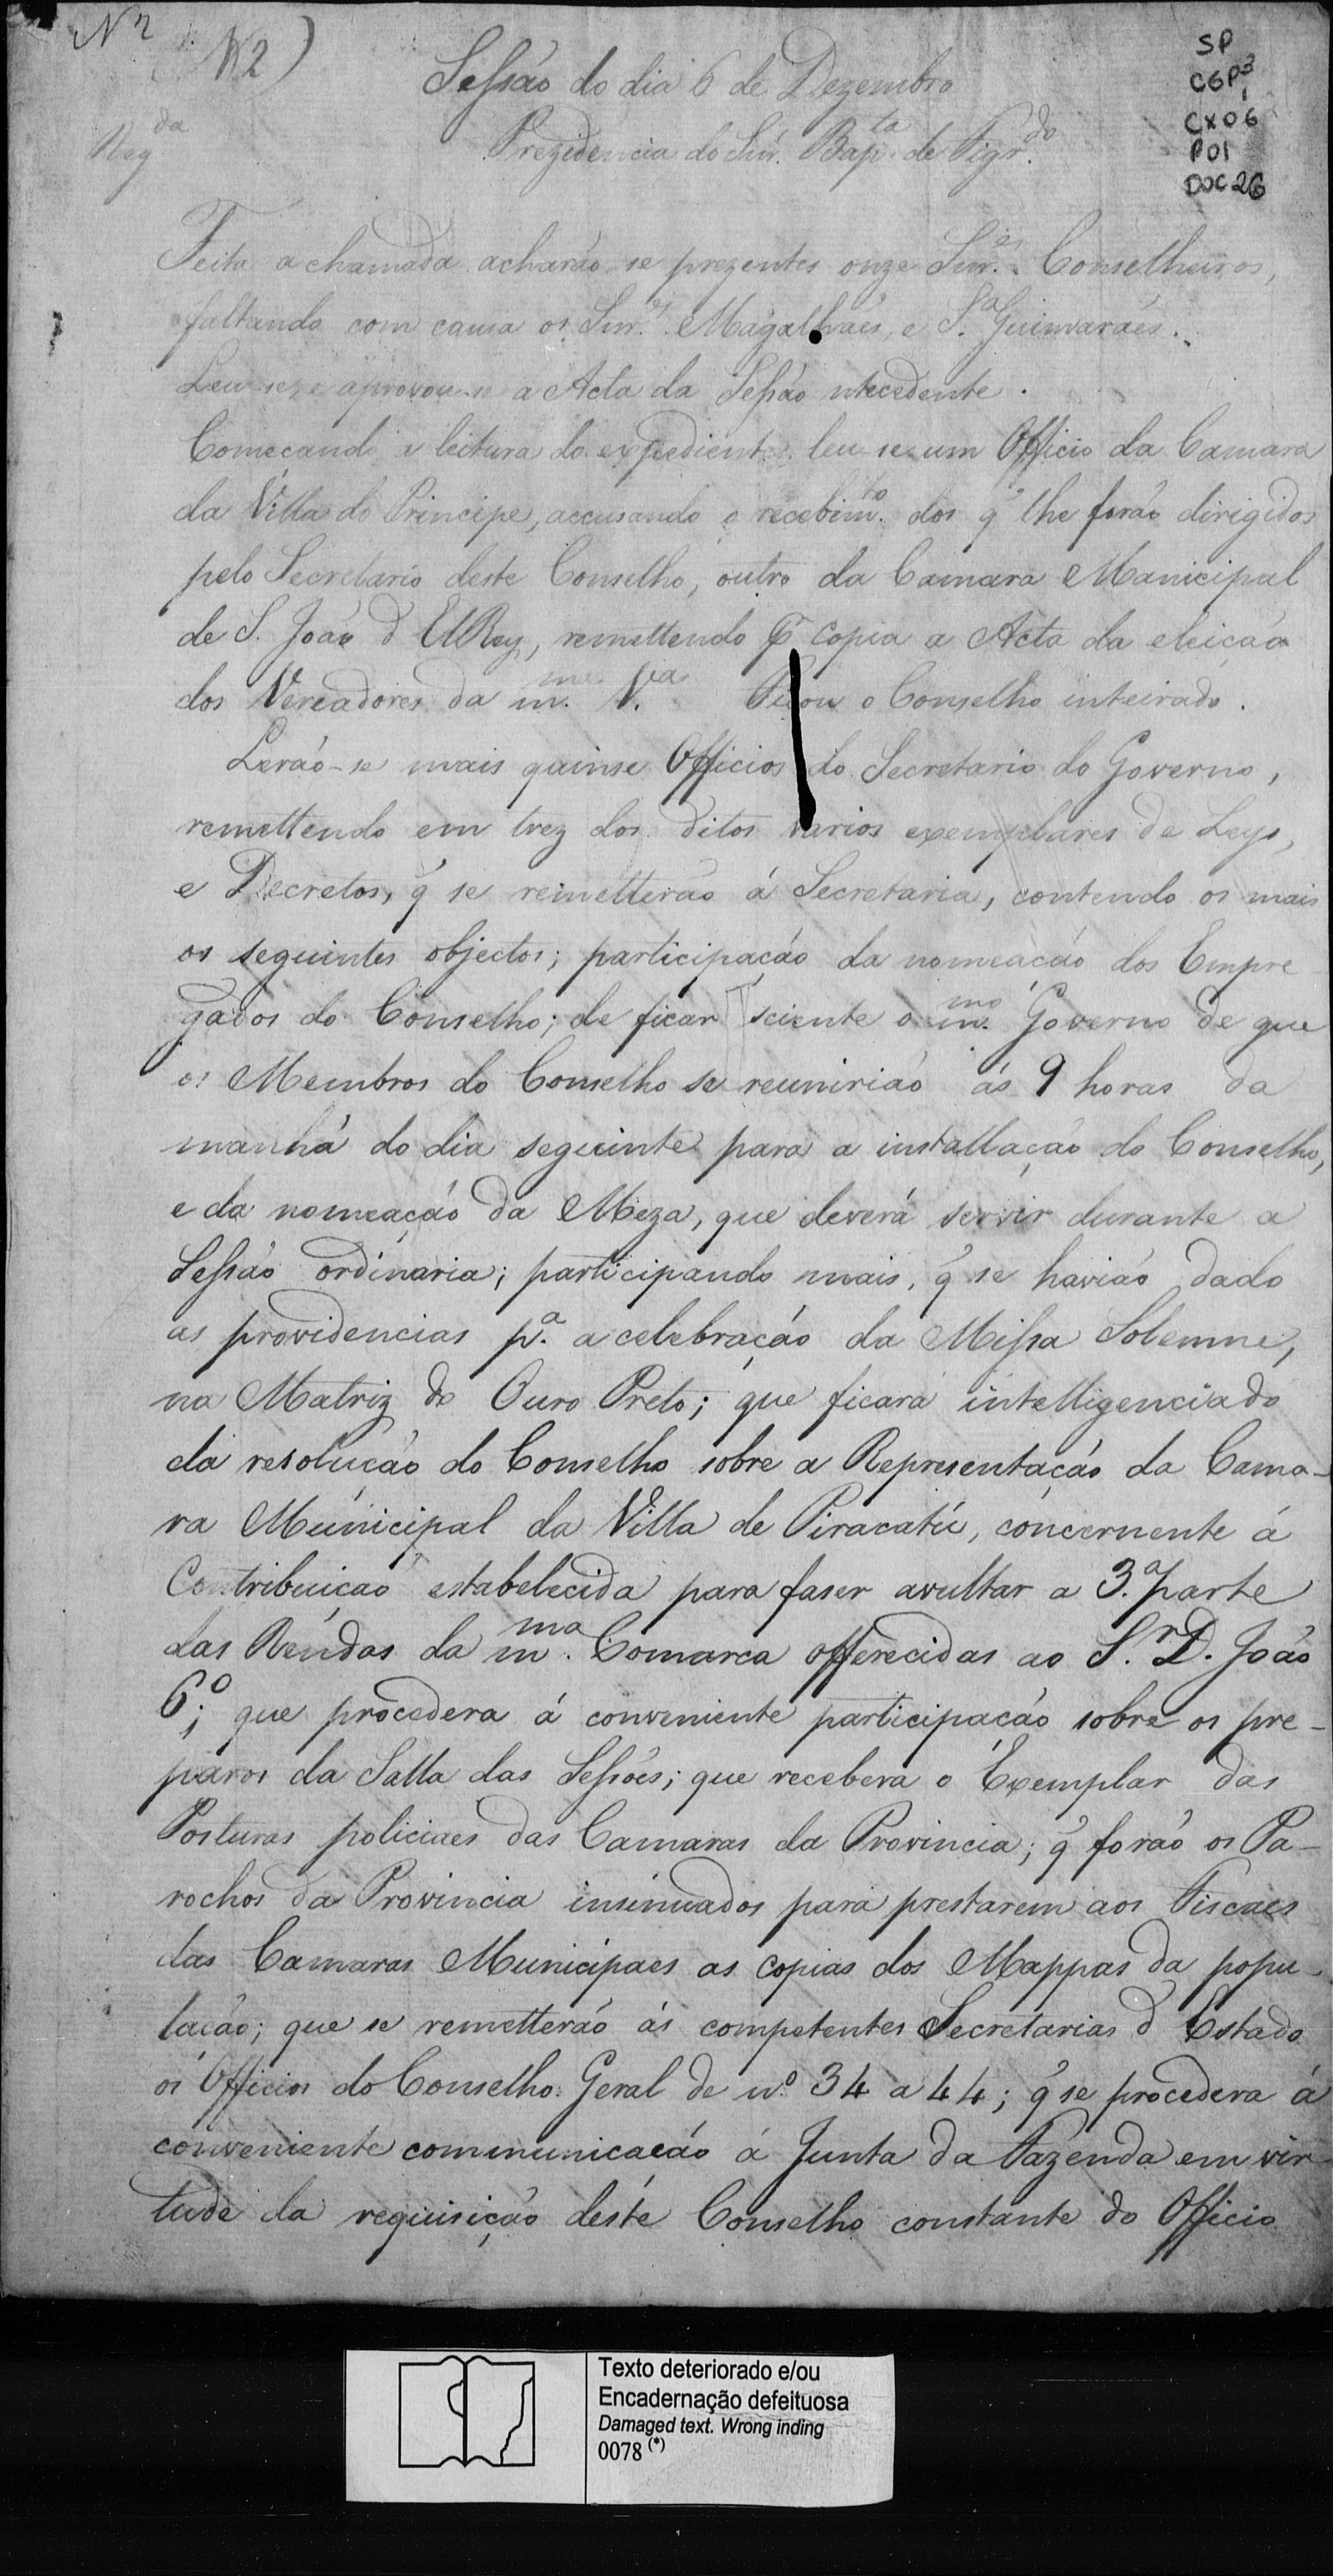 N 2
N 2)
SP
CGP³
CX06
P01
DOC 26
Sessão do dia 6 de Dezembro
Reg.da
Prezidencia do Snr. Bap.ta de Figr.do
Feita a chamada acharão-se prezentes onze Snr.es Conselheiros,
faltando com causa os Snr.es Magalhães, e S.a Guimaraés.
Leu-se, e aprovou-se a Acta da Sessão antecedente.
Comecando a leitura do expediente leu-se um Officio da Camara
da Villa do Principe, accusando o recebim.to dos q̃ lhe forão dirigidos
pelo Secretario deste Conselho, outro da Camara Municipal
de S. João d'ElRey, remettendo p.r copia a Acta da eleicão
dos Vereadores da m.ma V.a Ficou o Conselho inteirado.
Lerão-se mais quinse Officios do Secretario do Governo,
remettendo em trez dos ditos varios exemplares de Leys,
e Decretos, q̃ se remetterão á Secretaria, contendo os mais
os seguintes objectos; participação da nomeacão dos Empre
gados do Conselho; de ficar sciente o m.mo Governo de que
os Membros do Conselho se reunirião ás 9 horas da
manhã do dia seguinte para a installação do Conselho,
e da nomeação da Meza, que deverá servir durante a
Sessão ordinaria; participando mais, q̃ se havião dado
as providencias p.a a celebração da Missa Solemne,
na Matriz do Ouro Preto; que ficará intelligenciado
da resolucão do Conselho sobre a Representação da Cama-
ra Municipal da Villa de Piracatú, concernente á
Contribuicao estabelecida para faser avultar a 3.a parte
das Rendas da m.ma Comarca offerecidas ao S.r D. João
6.o; que procedera á conveniente participacão sobre os pre-
paros da Salla das Sessões; que recebera o Exemplar das
Posturas policiaes das Camaras da Provincia; q̃ forão os Pa-
rochos da Provincia insinuados para prestarem aos Fiscaes
das Camaras Municipaes as copias dos Mappas da popu-
lacão; que se remetterão ás competentes Secretarias d'Estado
os Officios do Conselho Geral de n.o 34 a 44; q̃ se procedera á
conveniente communicacão á Junta da Fazenda em vir-
tude da requisição deste Conselho constante do Officio
Texto deteriorado e/ou
Encadernação defeituosa
Damaged text. Wrong inding
0078 (*)